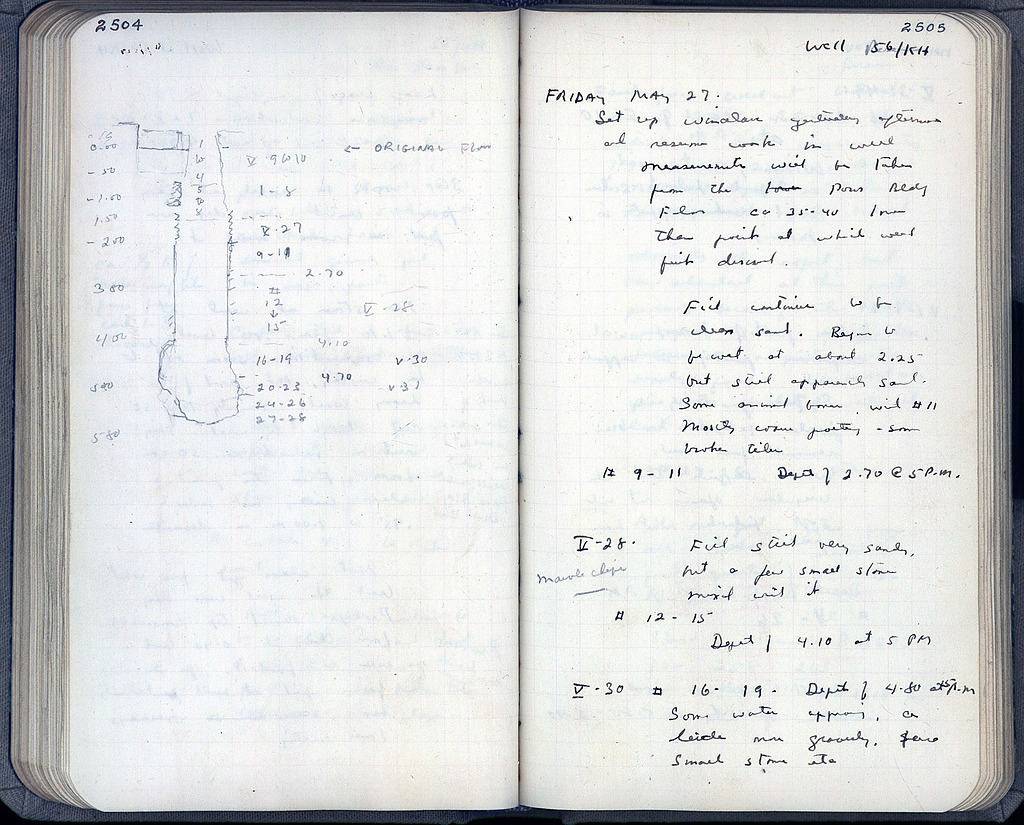 2504
-.15
0.00
← ORIGINAL FLOOR
1
V.9 to 10
- .50
4
5
1-8
- 1.00
8
1.50
V.27
- 2.00
9-11
2.70
3.00
#
12
↓
15
V-28
4.00
4.10
16-19
V.30
4.70
500
20-23
V-31
24-26
27-28
580
2505
Well B6/KH
FRIDAY MAY 27.
Set up windlass yesterday afternoon
and resume work in well
measurements will be taken
from the Pous Redg
Floor ca 35-40 lower
than point at which well
first discovd.
Fill continues to be
clean sand. Begins to
be wet at about 2.25
but still apparently sand.
Some animal bones with #11
Mostly coarse pottery - some
broken tiles
# 9-11 Depth of 2.70 @ 5 P.M.
V-28. Fill still very sandy,
Marble chips
but a few small stones
mixed with it
# 12-15
Depth of 4.10 at 5 PM
V-30 # 16-19. Depth of 4.80 at 5 P.M
Some water appearing, a
little more gravelly, few
small stones etc